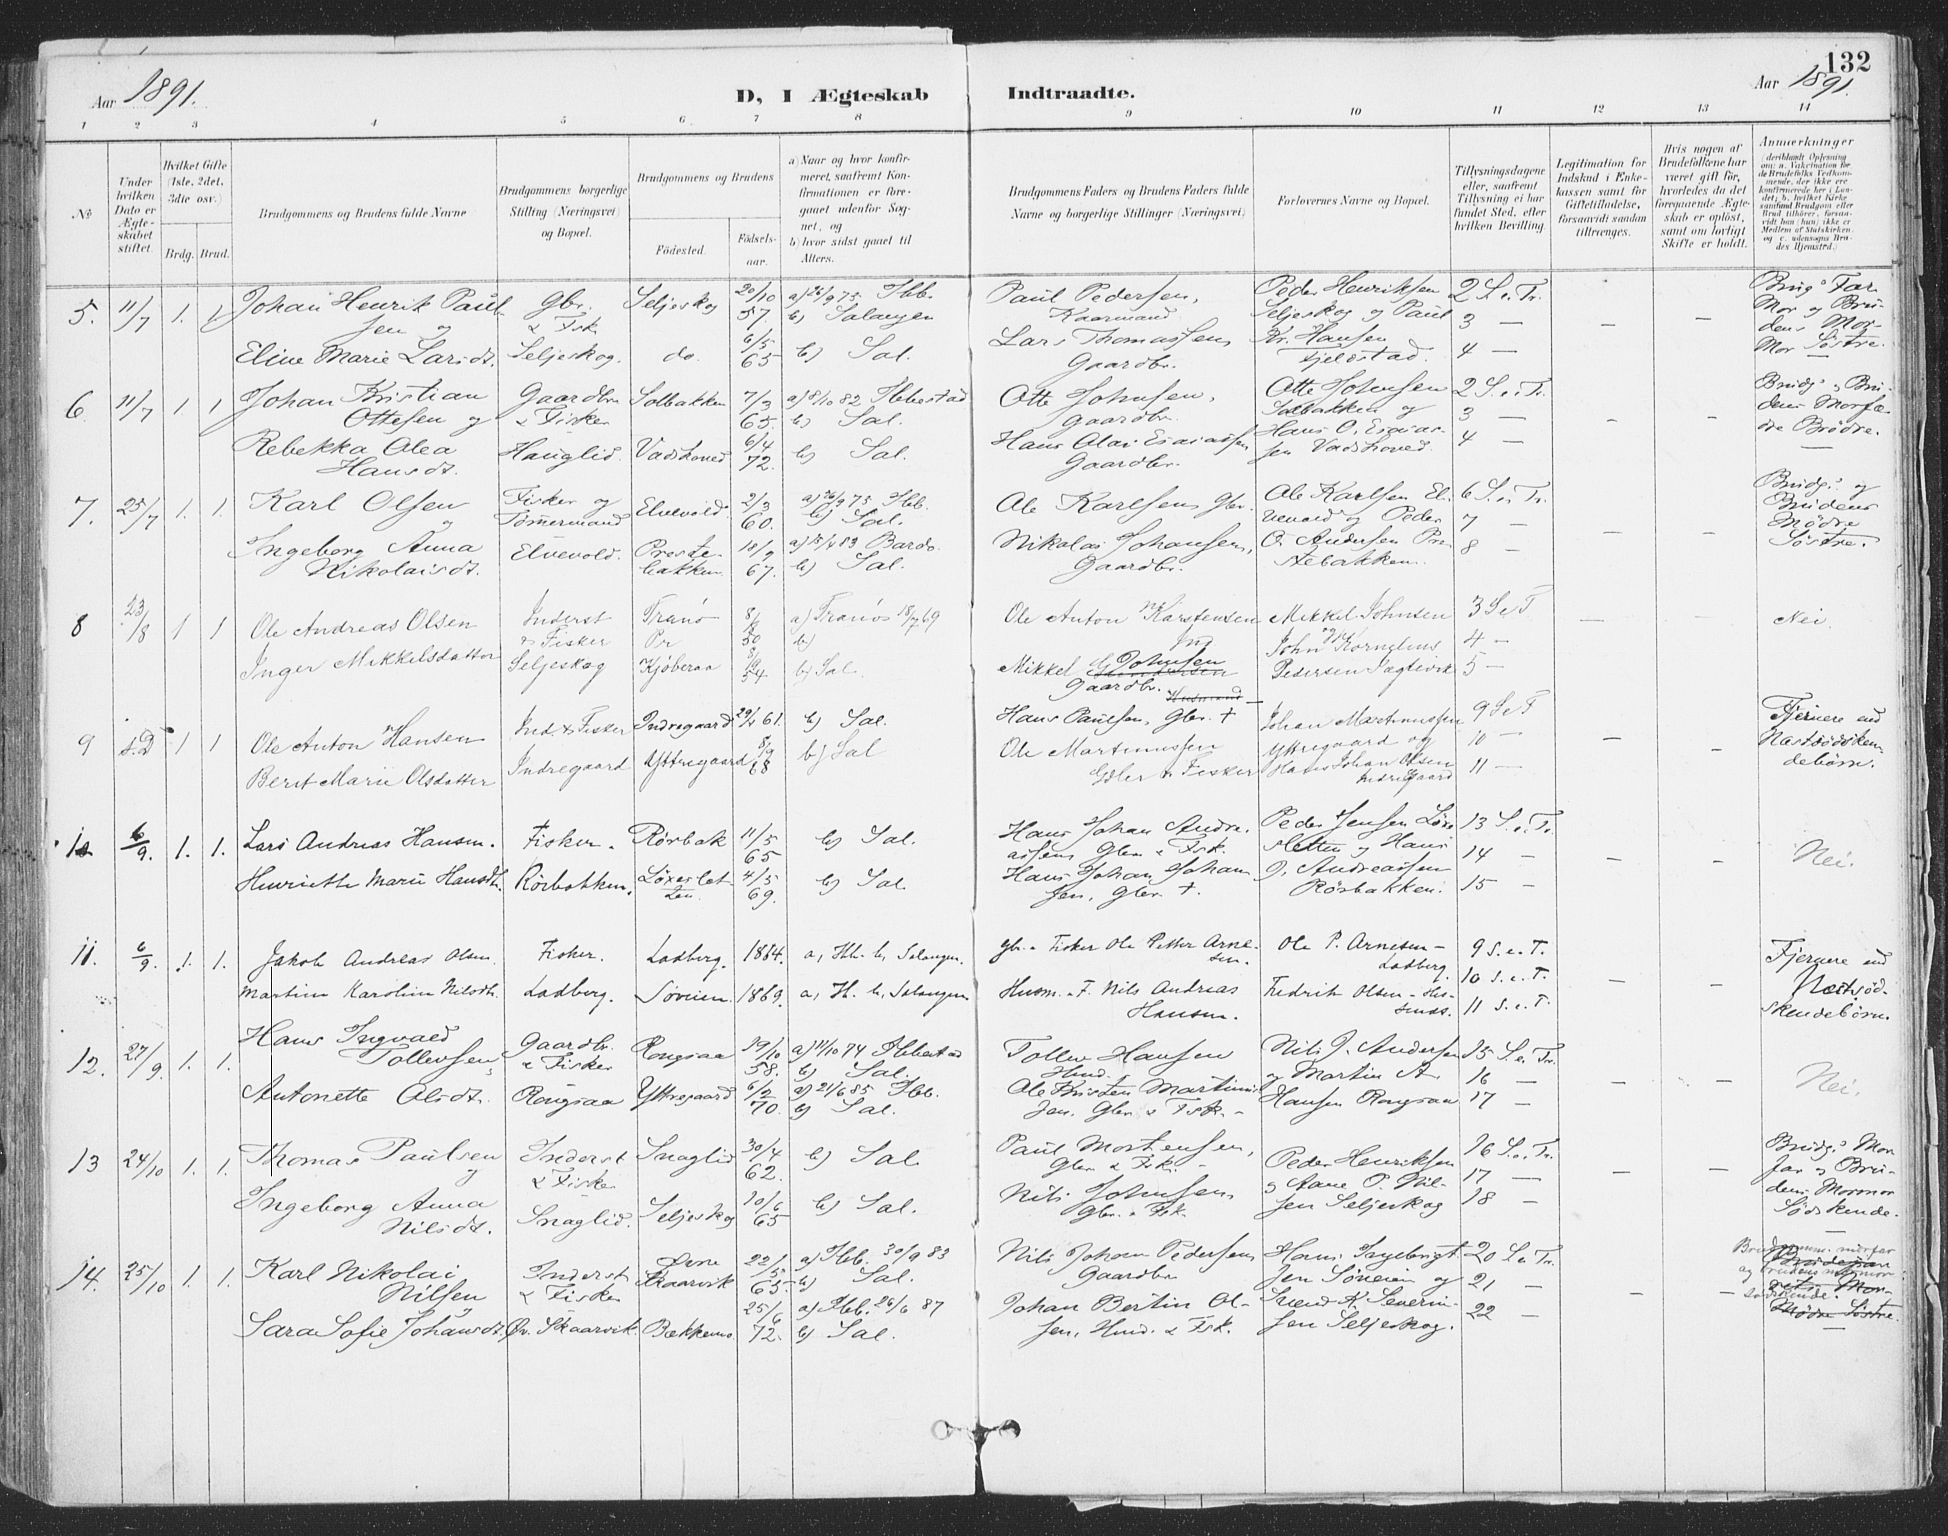 132
Aar 1891.
D, I Ægteskab Indtraadte.
Aar 1891.
1 2 3 4 5 6 7 8 9 10 11 12 13 14
№
Under hvilken Dato er Ægteskabet stiftet.
Hvilket Gifte (1ste, 2det, 3die osv.)
Brdg. Brud.
Brudgommens og Brudens fulde Navne
Brudgommens borgerlige Stilling (Næringsvei) og Bopæl.
Brudgommens og Brudens
Fødested.
Fødselsaar.
a) Naar og hvor konfirmeret, saafremt Konfirmationen er foregaaet udenfor Sognet, og
b) hvor sidst gaaet til Alters.
Brudgommens Faders og Brudens Faders fulde Navne og borgerlige Stillinger (Næringsvei)
Forlovernes Navne og Bopæl.
Tillysningsdagene eller, saafremt Tillysning ei har fundet Sted, efter hvilken Bevilling.
Legitimation for Indskud i Enkekassen samt for Giftetilladelse, forsaavidt saadan tiltrænges.
Hvis nogen af Brudefolkene har været gift før, hvorledes da det foregaaende Ægteskab er opløst, samt om lovligt Skifte er holdt.
Anmærkninger
5. 11/7 1. 1. Johan Henrik Paulsen og Gbr. & Fisk. Seljeskog 20/10 57. a) 26/9 75 Ibb. b) Salangen Paul Pedersen, Kaarmand Peder Henriksen Seljeskog og Paul 2 S. e. Tr. 3 — Brudg.s Far Mor og Brudens Mor
Eline Marie Larsdt. Seljeskog. do. 6/5 65 b) Sal. Lars Thomassen Gaardbr. Kr. Hansen Fjeldstad. 4 — Mor Søstre.
6. 11/7 1 1 Johan Kristian Ottesen og Gaardbr. & Fisker Solbakken 7/3 65. a) 8/10 82 Ibbestad b) Sal. Otte Johnsen, Gaardbr. Otte Johnsen Solbakken og 2 S. e. Tr. 3 — Brudg.s og Brudens Morfædre Brødre.
Rebekka Olea Hansdt. Hauglid. Vadshoved 6/4 72. b) Sal. Hans Olai Esaiassen Gaardbr. Hans O. Esaiassen Vadshoved. 4 —
7. 25/7 1. 1. Karl Olsen og Fisker og Tømmermand Elvevold 2/3 60. a) 26/9 75 Ibb. b) Sal. Ole Karlsen Gbr. Ole Karlsen Elvevold og Peder 6 S. e. Tr. 7 — Brudg.s og Brudens Mødre Søstre.
Ingeborg Anna Nikolaisdt. Elvevold. Prestebakken 18/9 67. a) 15/4 83 Bardo b) Sal. Nikolai Johansen, Gaardbr. O. Andersen Prestebakken. 8 —
8 23/8 1 1 Ole Andreas Olsen Inderst & Fisker Tranø Pr 8/8 50 a) Tranøs 18/7 69 b) Ole Anton Karstensen Mikkel Johnsen og John Kornelius 3 S e T 4 — Nei.
Inger Mikkelsdatter Seljeskog Kjøberaa 8/9 54. b) Sal. Mikkel Johnsen Gaardbr. Pedersen Sagtevik 5 —
9 s.D 1 1 Ole Anton Hansen Ind. & Fisker Indregaard 29/4 61. b) Sal. Hans Paulsen, Gbr. † Johan Martinussen 9 S e T Fjernere end Næstsødskendebørn.
Berit Marie Olsdatter Indregaard Yttregaard 8/9 68 b) Sal Ole Martinussen Gdbr & Fisker Yttregaard og Hans Johan Olsen Indregaard 10 — 11 —
10 6/9. 1. 1. Lars Andreas Hansen. Fisker. Rørbak 11/5 65 b) Sal. Hans Johan Andreassen Gbr. & Fsk. Peder Jensen Løxesletten og Hans 13 S. e. Tr. 14 — Nei.
Henriette Marie Hansdt. Rørbakken. Løxesletten 4/5 69. b) Sal. Hans Johan Johansen, Gbr. †. J. Andreassen Rørbakken. 15 —
11. 6/9. 1. 1. Jakob Andreas Olsen. Fisker. Ladberg. 1864. a, Ibb. b, Salangen. Gbr. & Fisker Ole Petter Arnesen. Ole P. Arnesen — Ladberg. 9 S. e. T. 10 S. e. T. Fjernere end Næstsødskendebørn.
Martine Karoline Nilsdt. Ladberg. Søveien. 1869. a, Ib. b, Salangen Husm. & F. Nils Andreas Hansen. Fredrik Olsen 11 S. e. T.
12. 27/9. 1. 1. Hans Ingvald Tollevsen Gaardbr. & Fisker Rongsaa 19/10 58. a) 11/10 74 Ibbestad b) Sal. Tollev Hansen Husd. Nils J. Andersen og Martin A. 15 S. e. Tr. 16 — Nei.
Antonette Olsdt. Rongsaa Yttregaard 6/2 70. a) 21/6 85 Ibb. b) Sal. Ole Kristen Martinussen, Gbr. & Fsk. Hansen Rongsaa 17 —
13 24/10 1. 1. Thomas Paulsen og Inderst & Fisker Snaglid 30/4 62. b) Sal. Paul Mortensen, Gbr. & Fisk. Peder Henriksen 16 S. e. Tr. 17 — Brudg.s Morfar og Brudens Mormor Sødskende.
Ingeborg Anna Nilsdt. Snaglid. Seljeskog 10/6 65 b) Sal. Nils Johnsen Gbr. & Fsk. og Aane P. Nilsen Seljeskog 18 —
14. 25/10 1. 1. Karl Nikolai Nilsen og Inderst & Fisker Øvre Skaarvik 22/5 65. a) Ibb. 30/9 83 b) Sal. Nils Johan Pedersen Gaardbr. Hans Ingebrigtsen Søveien og 20 S. e. Tr. 21 — Brudgomm. morfar og brudens mormor sødskende.
Sara Sofie Johansdt. Øv. Skaarvik. Bækkemo 25/6 72. a) Ibb. 26/6 87 b) Sal. Johan Bertin Olsen, Hmd. & Fsk. Svend K. Severinsen Seljeskog. 22 —